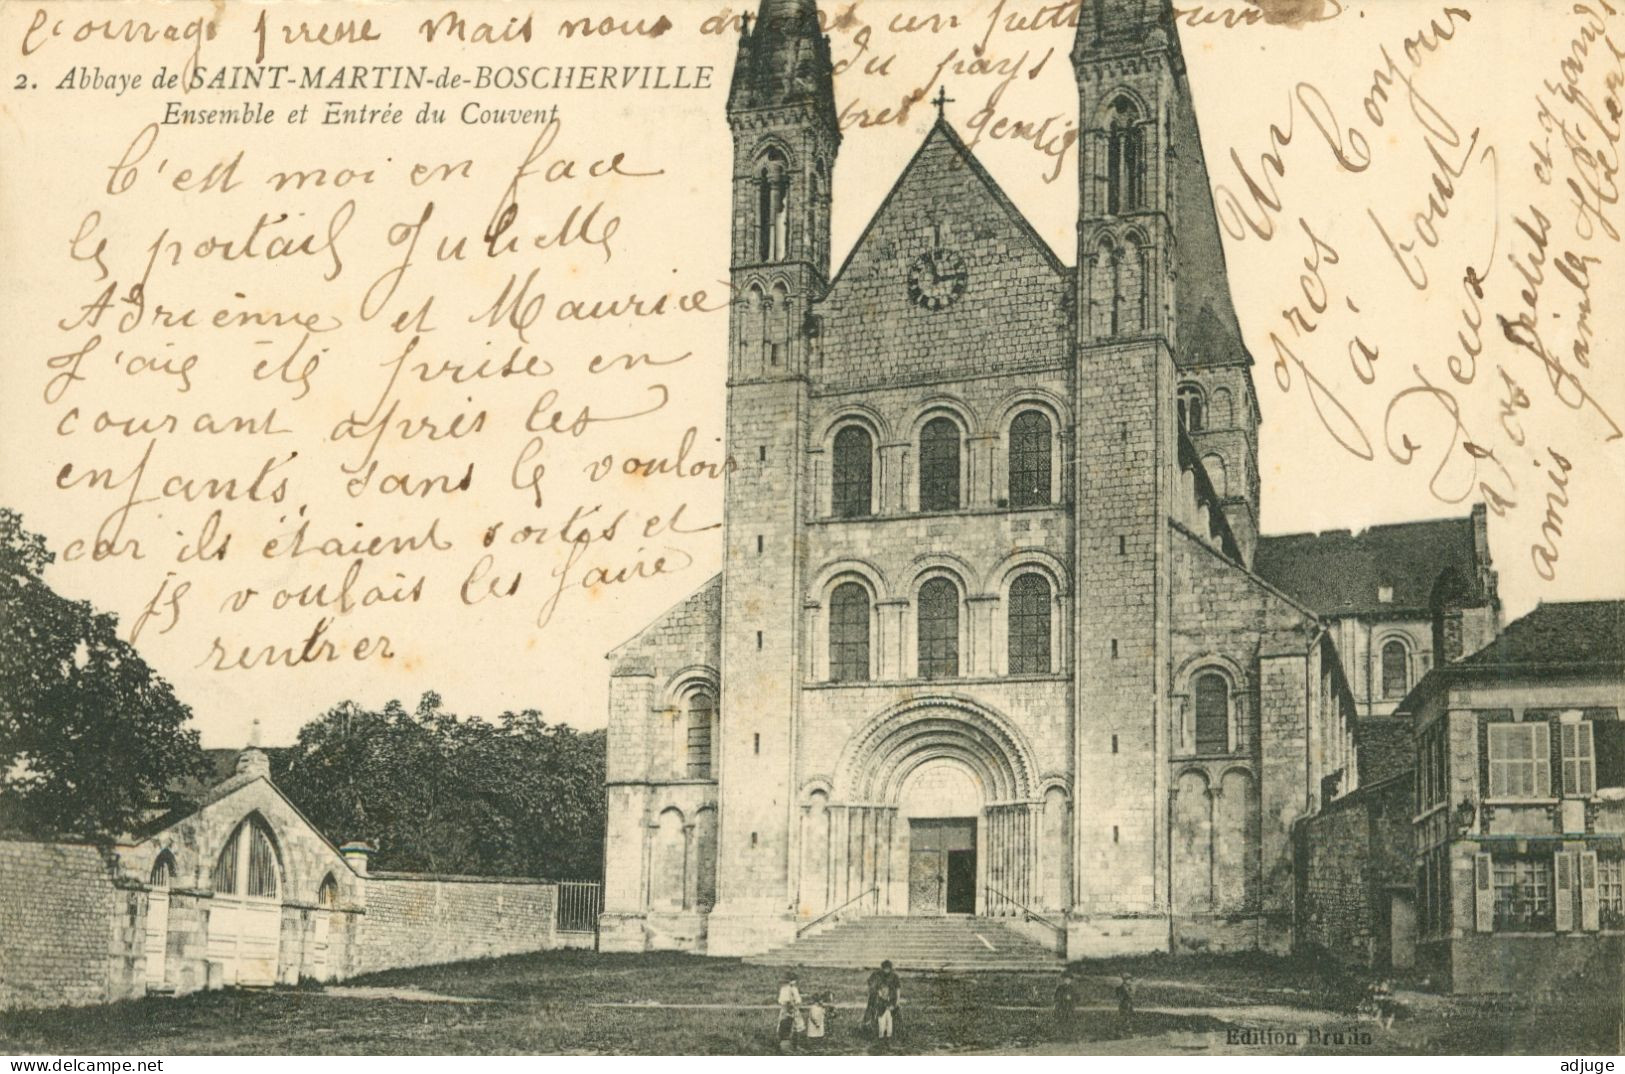 l'ouvrage presse mais nous avons un petit ouvrier
du pays
très gentil
2. Abbaye de SAINT-MARTIN-de-BOSCHERVILLE
Ensemble et Entrée du Couvent
C'est moi en face
le portail Juliette
Adrienne et Maurice
J'ais été prise en
courant après les
enfants, sans le vouloir
car ils étaient sortis et
je voulais les faire
rentrer
Un
gros bonjour
à tout
Deux
Vos petits et grands
amis famille Hébert
Edition Brunin
adjuge